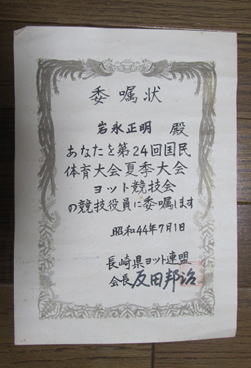 委嘱状
岩永正明 殿
あなたを第24回国民
体育大会夏季大会
ヨット競技会
の競技役員に委嘱します
昭和44年7月1日
長崎県ヨット連盟
会長 友田邦治